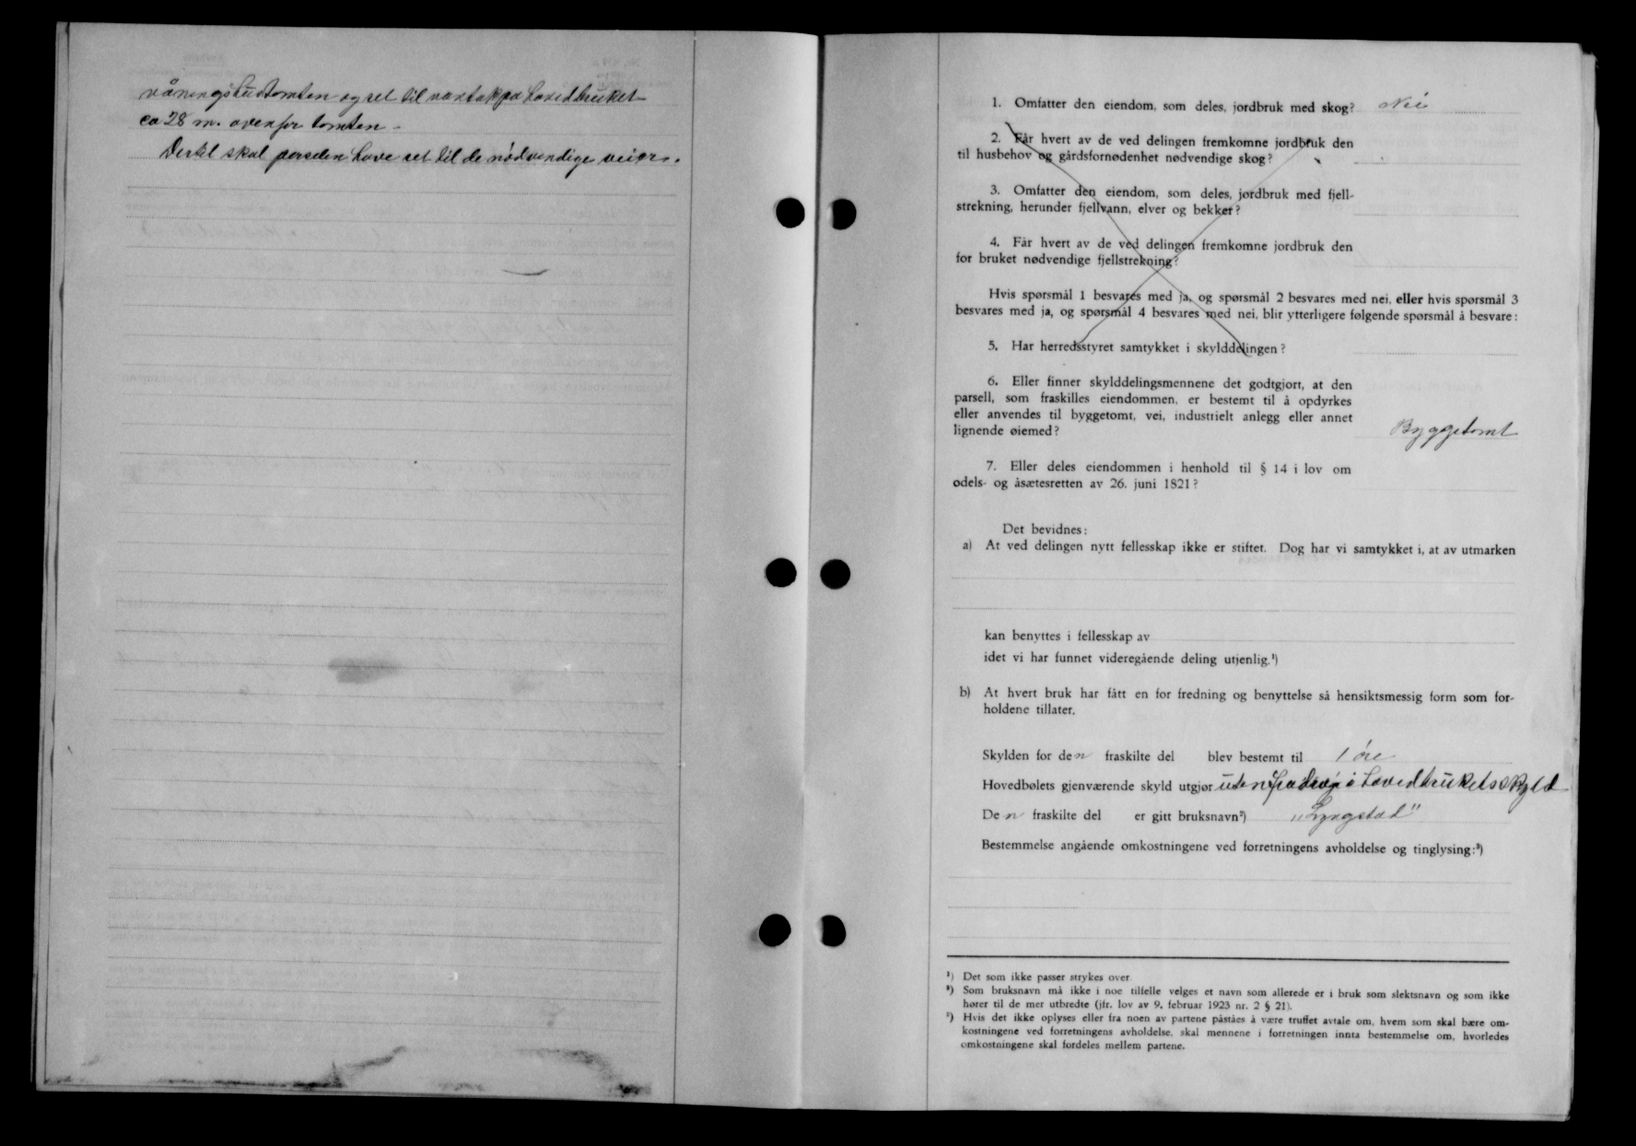 våningshustomten og ret til vantak på hovedbruket
ca 28 m. ovenfor tomten.
Dertil skal parselen have ret til de nödvendige veier.
1. Omfatter den eiendom, som deles, jordbruk med skog? Nei
2. Får hvert av de ved delingen fremkomne jordbruk den
til husbehov og gårdsfornødenhet nødvendige skog?
3. Omfatter den eiendom, som deles, jordbruk med fjell-
strekning, herunder fjellvann, elver og bekker?
4. Får hvert av de ved delingen fremkomne jordbruk den
for bruket nødvendige fjellstrekning?
Hvis spørsmål 1 besvares med ja, og spørsmål 2 besvares med nei, eller hvis spørsmål 3
besvares med ja, og spørsmål 4 besvares med nei, blir ytterligere følgende spørsmål å besvare:
5. Har herredsstyret samtykket i skylddelingen?
6. Eller finner skylddelingsmennene det godtgjort, at den
parsell, som fraskilles eiendommen, er bestemt til å opdyrkes
eller anvendes til byggetomt, vei, industrielt anlegg eller annet
lignende øiemed? Byggetomt
7. Eller deles eiendommen i henhold til § 14 i lov om
odels- og åsætesretten av 26. juni 1821?
Det bevidnes:
a) At ved delingen nytt fellesskap ikke er stiftet. Dog har vi samtykket i, at av utmarken
kan benyttes i fellesskap av
idet vi har funnet videregående deling utjenlig.¹)
b) At hvert bruk har fått en for fredning og benyttelse så hensiktsmessig form som for-
holdene tillater.
Skylden for den fraskilte del blev bestemt til 1 öre
Hovedbølets gjenværende skyld utgjør uten fradrag i hovedbrukets skyld
Den fraskilte del er gitt bruksnavn²) "Lyngstad"
Bestemmelse angående omkostningene ved forretningens avholdelse og tinglysing:³)
¹) Det som ikke passer strykes over.
²) Som bruksnavn må ikke i noe tilfelle velges et navn som allerede er i bruk som slektsnavn og som ikke
hører til de mer utbredte (jfr. lov av 9. februar 1923 nr. 2 § 21).
³) Hvis det ikke oplyses eller fra noen av partene påståes å være truffet avtale om, hvem som skal bære om-
kostningene ved forretningens avholdelse, skal mennene i forretningen innta bestemmelse om, hvorledes
omkostningene skal fordeles mellem partene.